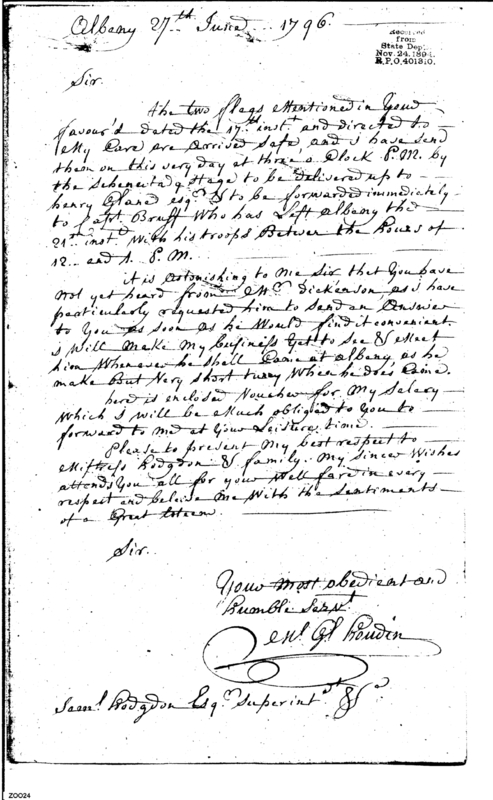 Albany 27th June 1796.
Received
from
State Dept.
Nov. 24, 1894.
R.P.O. 401310.
Sir.
the two flags Mentioned in Your
favour'd dated the 17th inst and directed to
My Care are Arrived Safe, and i have Send
them on this very day at three o Clock P.M. by
the Schenectady Stage to be delivered up to
henry Glane esqr & to be forwarded immediately
to Capt Bruff Who has Left Albany the
21st instt With his troops Betwen the hours of
12 and 1. P.M.
it is Astonishing to Me Sir that You have
Not yet heard from Mr dickenson as i have
particularly requested him to Send an Answer
to You as Soon as he Would find it convenient.
i Will Make My business Yet to See & Meet
him Whenever he Shall Came at Albany as he
make But Very Short turry When he does Came.
here is enclosed Voucher for My Salary
Which i will be Much obliged to You to
forward to Me at Your Leisure time.
Please to present My best respect to
Mistress hodgdon & family. My Sincer Wishes
attends You all for your Well fare in every
respect and beleive Me With the Sentiments
of a Great Esteem.
Sir.
Your Most obedient and
humble Servt
Ml Gl houdin
Saml hodgdon Esqr Superintdt &c
Z0024